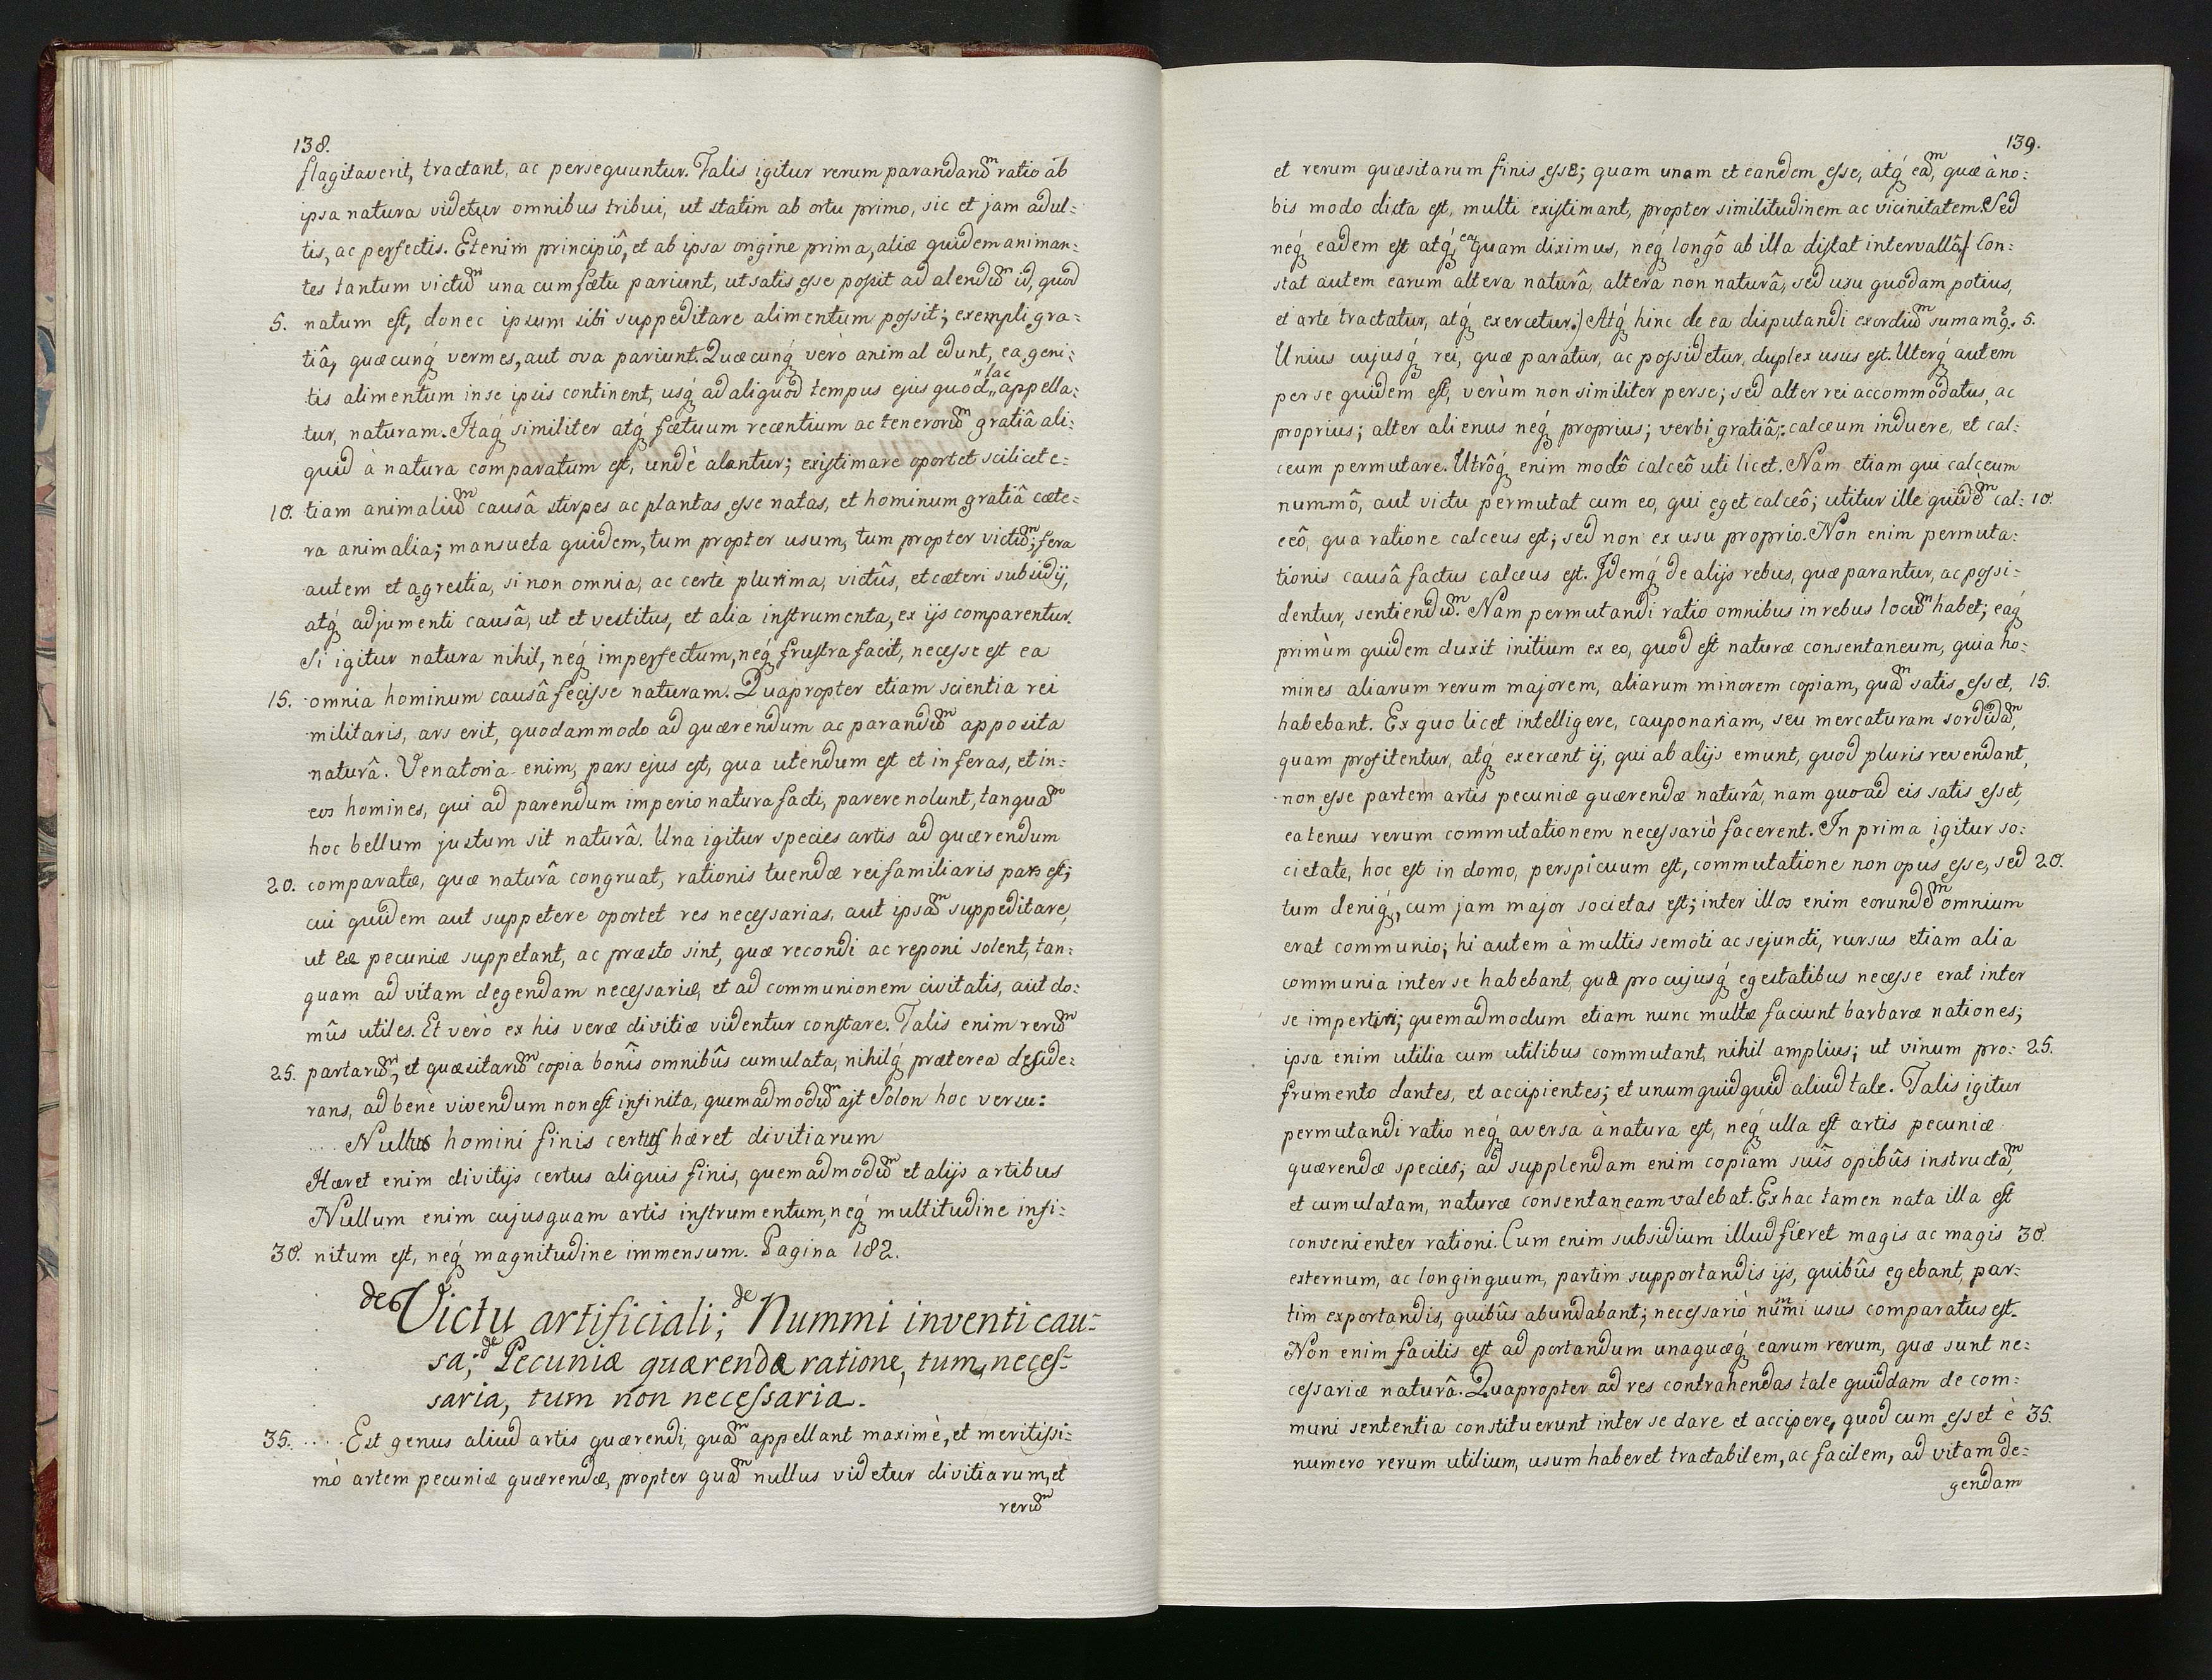 138.
flagitaverit, tractant, ac persequuntur. Talis igitur rerum parandarũm ratio ab
ipsa natura videtur omnibus tribui, ut statim ab ortu primo, sic et jam adul:
tis, ac perfectis. Etenim principiô, et ab ipsa origine prima, aliæ quidem animan:
tes tantum victũm una cum fœtu pariunt, ut satis esse possit ad alendũm id, quod
5. natum est, donec ipsum sibi suppeditare alimentum possit; exempli gra:
tiâ, quæcunq́ vermes, aut ova pariunt. Quæcunq́ verò animal edunt, ea geni:
tis alimentum in se ipsis continent, usq́ ad aliquod tempus ejus quod „lac„ appella:
tur, naturam. Itaq́ similiter atq́ fœtuum recentium ac tenerorũm gratiâ ali:
quid à natura comparatum est, undè alantur; existimare oportet scilicet e:
10. tiam animaliũm causâ stirpes ac plantas esse natas, et hominum gratiâ cæte:
ra animalia; mansueta quidem, tum propter usum, tum propter victũm; fera
autem et agrestia, si non omnia, ac certè plurima, victûs, et cæteri subsidij,
atq́ adjumenti causâ, ut et vestitus, et alia instrumenta, ex ijs comparentur.
Si igitur natura nihil, neq́ imperfectum, neq́ frustra facit, necesse est ea
15. omnia hominum causâ fecisse naturam. Quapropter etiam scientia rei
militaris, ars erit, quodammodo ad quærendum ac parandũm apposita
naturâ. Venatoria enim, pars ejus est, qua utendum est et in feras, et in:
eos homines, qui ad parendum imperio natura facti, parere nolunt, tanquãm
hoc bellum justum sit naturâ. Una igitur species artis ad quærendum
20. comparatæ, quæ naturâ congruat, rationis tuendæ rei familiaris pars est;
cui quidem aut suppetere oportet res necessarias, aut ipsãm suppeditare,
ut eæ pecuniæ suppetant, ac præsto sint, quæ recondi ac reponi solent, tan:
quam ad vitam degendam necessariæ, et ad communionem civitatis, aut do:
mûs utiles. Et verò ex his veræ divitiæ videntur constare. Talis enim rerũm
25. partarũm, et quæsitarũm copia bonîs omnibûs cumulata, nihilq́ præterea deside:
rans, ad benè vivendum non est infinita, quemadmodũm ajt Solon hoc versu:
Nullus homini finis certus hæret divitiarum
Hæret enim divitijs certus aliquis finis, quemadmodũm et alijs artibus
Nullum enim cujusquam artis instrumentum, neq́ multitudine infi:
30. nitum est, neq́ magnitudine immensum. Pagina 182.
de Victu artificiali; de Nummi inventi cau-
sa; de Pecuniæ quærendæ ratione, tum neces-
saria, tum non necessaria.
35. Est genus aliud artis quærendi, quãm appellant maximè, et meritissi:
mò artem pecuniæ quærendæ, propter quãm nullus videtur divitiarum, et
rerũm
139.
et rerum quæsitarum finis esse; quam unam et eandem esse, atq́ eãm, quæ à no:
bis modo dicta est, multi existimant, propter similitudinem ac vicinitatem. Sed
neq́ eadem est atq́, ea quam diximus, neq́ longô ab illa distat intervallô. Con:
stat autem earum altera naturâ, altera non naturâ, sed usu quodam potius,
et arte tractatur, atq́ exercetur.) Atq́ hinc de ea disputandi exordiũm sumam9. 5.
Unius cujusq́ rei, quæ paratur, ac possidetur, duplex usus est. Uterq́ autem
per se quidem est, verùm non similiter per se; sed alter rei accommodatus, ac
proprius; alter alienus neq́ proprius; verbi gratiâ; calceum induere, et cal:
ceum permutare. Utrôq́ enim modô calceô uti licet. Nam etiam qui calceum
nummô, aut victu permutat cum eo, qui eget calceô; utitur ille quidẽm cal: 10.
ceô, qua ratione calceus est; sed non ex usu proprio. Non enim permuta:
tionis causâ factus calceus est. Idemq́ de alijs rebus, quæ parantur, ac possi:
dentur, sentiendũm. Nam permutandi ratio omnibus in rebus locũm habet; eaq́
primùm quidem duxit initium ex eo, quod est naturæ consentaneum, quia ho:
mines aliarum rerum majorem, aliarum minorem copiam, quãm satis esset, 15.
habebant. Ex quo licet intelligere, cauponariam, seu mercaturam sordidãm,
quam profitentur, atq́ exercent ij, qui ab alijs emunt, quod pluris revendant,
non esse partem artis pecuniæ quærendæ naturâ, nam quoad eis satis esset,
eatenus rerum commutationem necessariò facerent. In prima igitur so:
cietate, hoc est in domo, perspicuum est, commutatione non opus esse, sed 20.
tum deniq́, cum jam major societas est; inter illos enim eorundẽm omnium
erat communio; hi autem à multis semoti ac sejuncti, rursus etiam alia
communia inter se habebant, quæ pro cujusq́ egestatibus necesse erat inter
se impertiri; quemadmodum etiam nunc multæ faciunt barbaræ nationes;
ipsa enim utilia cum utilibus commutant, nihil amplius; ut vinum pro: 25.
frumento dantes, et accipientes; et unumquidquid aliud tale. Talis igitur
permutandi ratio neq́ aversa à natura est, neq́ ulla est artis pecuniæ
quærendæ species; ad supplendam enim copiam suîs opibûs instructãm,
et cumulatam, naturæ consentaneam valebat. Ex hac tamen nata illa est
convenienter rationi. Cum enim subsidium illud fieret magis ac magis 30.
externum, ac longinquum, partim supportandis ijs, quibûs egebant, par:
tim exportandis, quibûs abundabant; necessariò num̃i usus comparatus est.
Non enim facilis est ad portandum unaquæq́ earum rerum, quæ sunt ne:
cessariæ naturâ. Quapropter ad res contrahendas tale quiddam de com:
muni sententia constituerunt inter se dare et accipere, quod cum esset è 35.
numero rerum utilium, usum haberet tractabilem, ac facilem, ad vitam de:
gendam